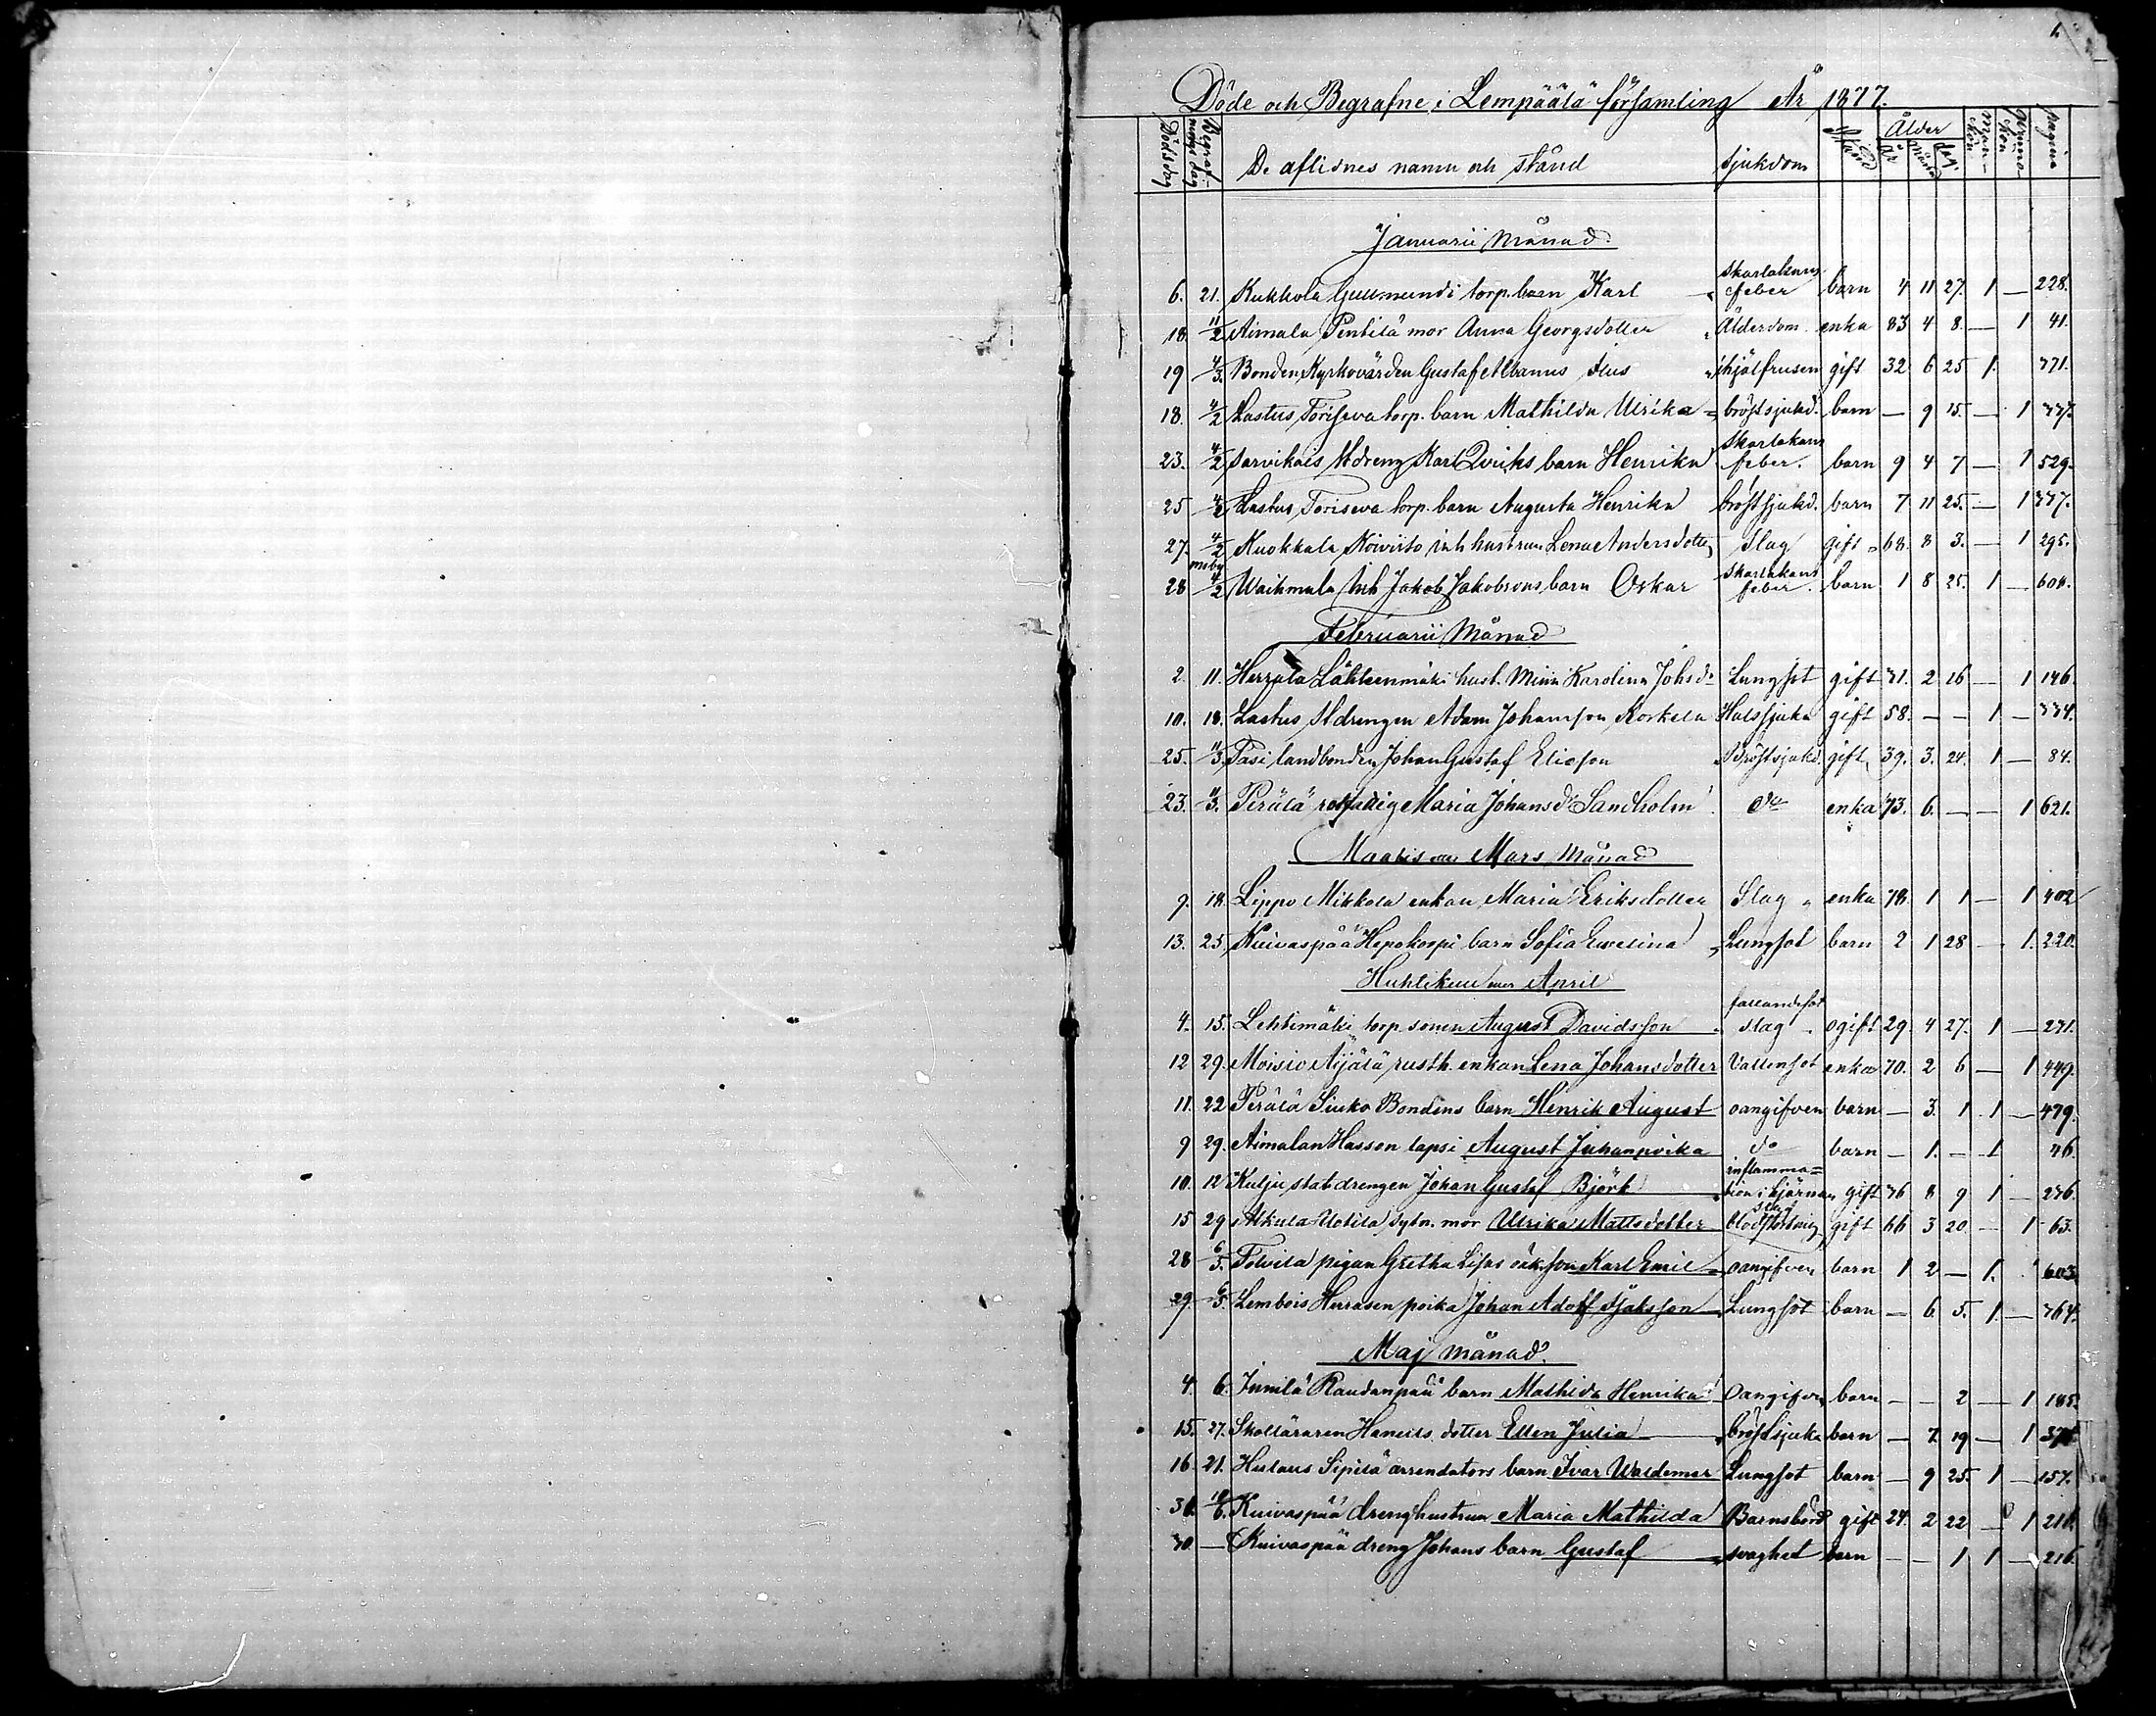 1.
Döde och Begrafne i Lempäälä församling År 1877.
Dödsdag Begrafnings dag De aflidnes namn och stånd sjukdom Stånd Ålder år månad dag. Mankön Qvinnokön pagina
Januarii Månad
6. 21. Kukkola Gullmundi torp. barn Karl skarlakans feber barn 4 11 27. 1 — 228.
18. 11/2 Aimala Pentilä mor Anna Georgsdotter Ålderdom. enka 83 4 8. — 1 41.
19 4/3. Bonden Kyrkovärden Gustaf Albanus ihjälfrusen gift 32 6 25 1. 371.
18. 4/2 Lastus Toriseva torp. barn Mathilda Ulrika bröstsjukd. barn — 9 15. — 1 337.
23. 4/2 Sarvikais Karl Qviks barn Henrika Skarlakans feber. barn 9 4 7 — 1 529.
25 4/2 Lastus Toriseva torp. barn Augusta Henrika bröstsjukd. barn 7 11 25. — 1 337.
27. 4/2 Kuokkala Koivisto inh hustrun Lena Andersdotter Slag gift 68. 8 3. — 1 295.
28 4/2 Waihmala inh Jakob Jakobsons barn Oskar skarlakans feber. barn 1 8 25. 1 — 604.
Februarii Månad
2. 11. Herrala Lähteenmäki hust. Mina Karolina Johsdr Lungsot gift 31. 2 16 — 1 146.
10. 18. Lastus Adam Johansson Korkela Halssjuka gift 58. — — 1 — 334.
25. 11/3. Pasi landbonden Johan Gustaf Eliasson Bröstsjukd. gift 39. 3. 24. 1 — 84.
23. 11/3. Perälä rotfattig Maria Johansdr Sandholm do enka 73. 6. — — 1 621.
Maalis Mars Månad
9. 18. Lippo Mikkola enkan Maria Eriksdotter Slag enka 78. 1 1 — 1 402
13. 25. Kuivaspää Hepokorpi barn Sofia Ewelina Lungsot barn 2 1 28 — 1. 220.
Huhtikuu April
4. 15. Lehtimäki torp. sonen August Davidsson fallandesot slag ogift 29. 4 27. 1 — 271.
12 29. Moisio Äijälä rusth. enkan Lena Johansdotter Vattensot enka 70. 2 6 — 1 449.
11. 22 Perälä Siuko Bondens barn Henrik August oangifven barn — 3. 1 1 — 479.
9 29. Aimalan Hasson lapsi August Juhanpoika do barn — 1. — 1 46.
10. 12 Kulju statdrengen Johan Gustaf Björk inflammation i hjärnan gift 36 8 9 1 — 236.
15 29 Alkula Uotila sytn. mor Ulrika Mattsdotter blodstörtning gift 66 3 20 — 1 63.
28 6/5. Tolvila pigan Gretha Lisas oäk. son Karl Emil oangifven barn 1 2 — 1. 603.
29. 6/5. Lembois Herrasen poika Johan Adolf Isaksson Lungsot barn — 6 5. 1. — 364.
Maj månad.
4. 6. Innilä Raudanpää barn Mathilda Henrika oangifven barn — — 2 — 1 185.
15. 27. Skolläraren dotter Ellen Julia bröstsjuka barn — 7. 19 — 1
16. 21. Hulaus Sipilä arrendators barn Ivar Waldemar Lungsot barn — 9 25. 1 — 157.
31. 10/6. Kuivaspää drenghustrun Maria Mathilda Barnsbörd gift 24. 2 22 — 1 216.
30 — Kuivaspää dreng Johans barn Gustaf svaghet barn — — 1 1 — 216.